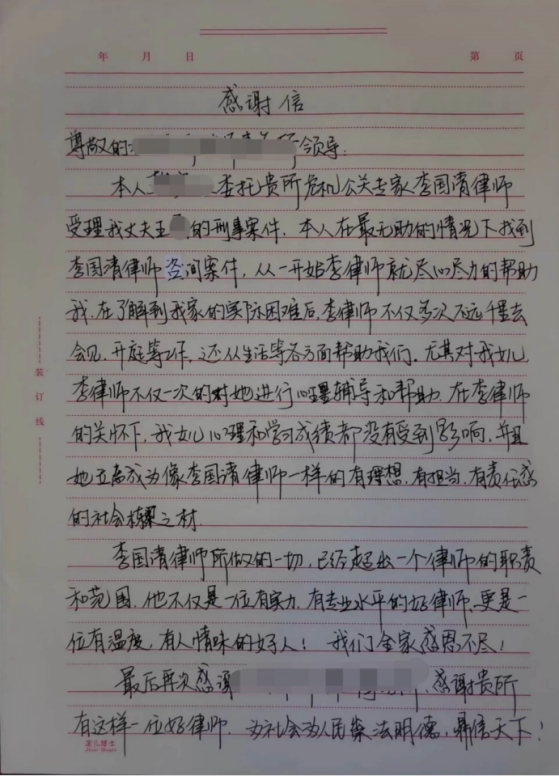 年 月 日 第 页
感谢信
尊敬的 领导:
本人 委托贵所危机公关专家李国清律师
受理我丈夫王 的刑事案件. 本人在最无助的情况下找到
李国清律师咨询案件, 从一开始李律师就尽心尽力的帮助
我. 在了解到我家的实际困难后, 李律师不仅多次不远千里去
会见. 开庭等工作, 还从生活等各方面帮助我们, 尤其对我女儿
李律师不仅一次的对她进行心理辅导和帮助. 在李律师
的关怀下, 我女儿心理和学习成绩都没有受到影响, 并且
她立志成为像李国清律师一样的有理想. 有担当. 有责任感
的社会栋梁之材.
李国清律师所做的一切, 已经超出一个律师的职责
和范围. 他不仅是一位有实力. 有专业水平的好律师, 更是一
位有温度, 有人情味的好人! 我们全家感恩不尽!
最后再次感谢 . 感谢贵所
有这样一位好律师. 为社会为人民 法明德, 鼎信天下!
装订线